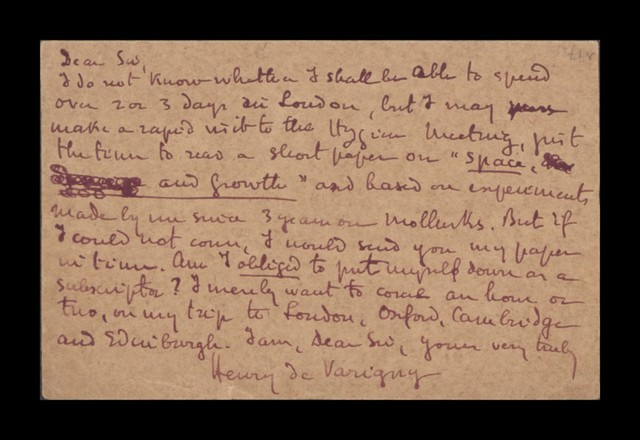 Dear Sir,
I do not know whether I shall be able to spend
over 2 or 3 days in London, but I may
make a rapid visit to the Hygien Meeting, just
the time to read a short paper on "space,
and growth" and based on experiments
made by me since 3 years on Mollusks. But if
I could not come, I would send you my paper
in time. Am I obliged to put myself down as a
subscriptor? I merely want to come an hour or
two, on my trip to London, Oxford, Cambridge
and Edinburgh. I am, Dear Sir, yours very truly
Henry de Varigny